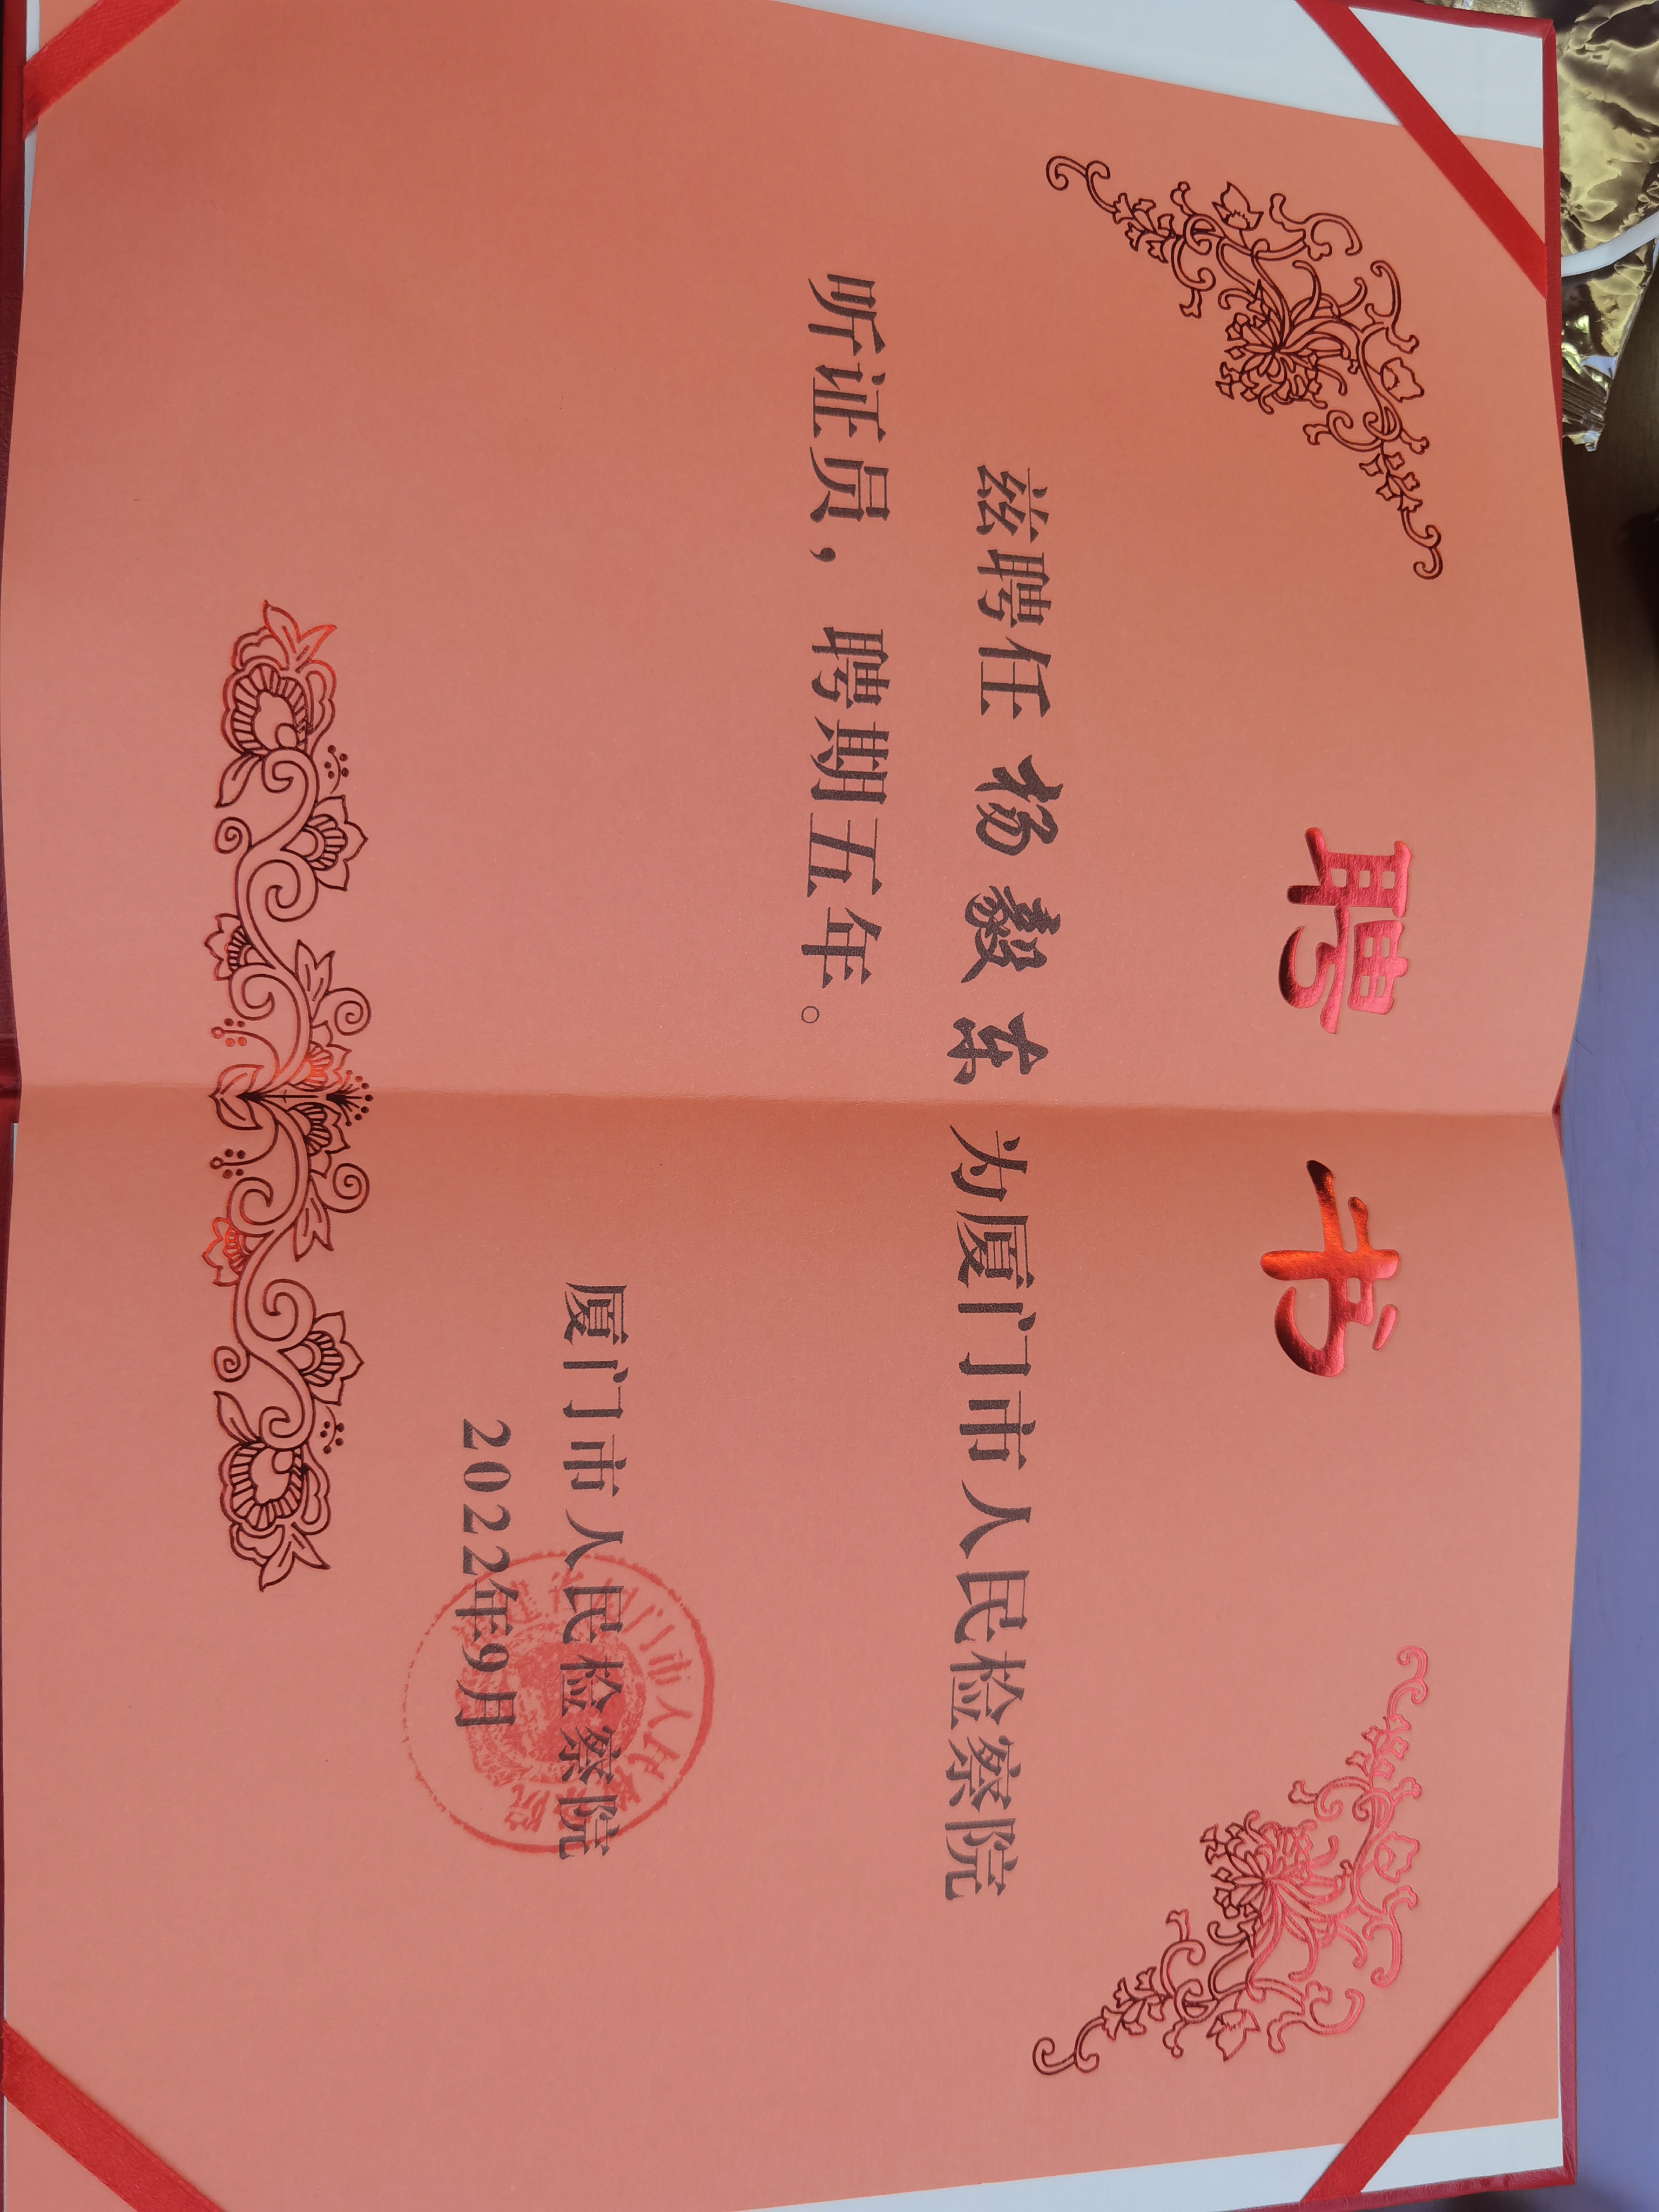 聘书
兹聘任 杨毅东 为厦门市人民检察院
听证员，聘期五年。
厦门市人民检察院
2022年9月